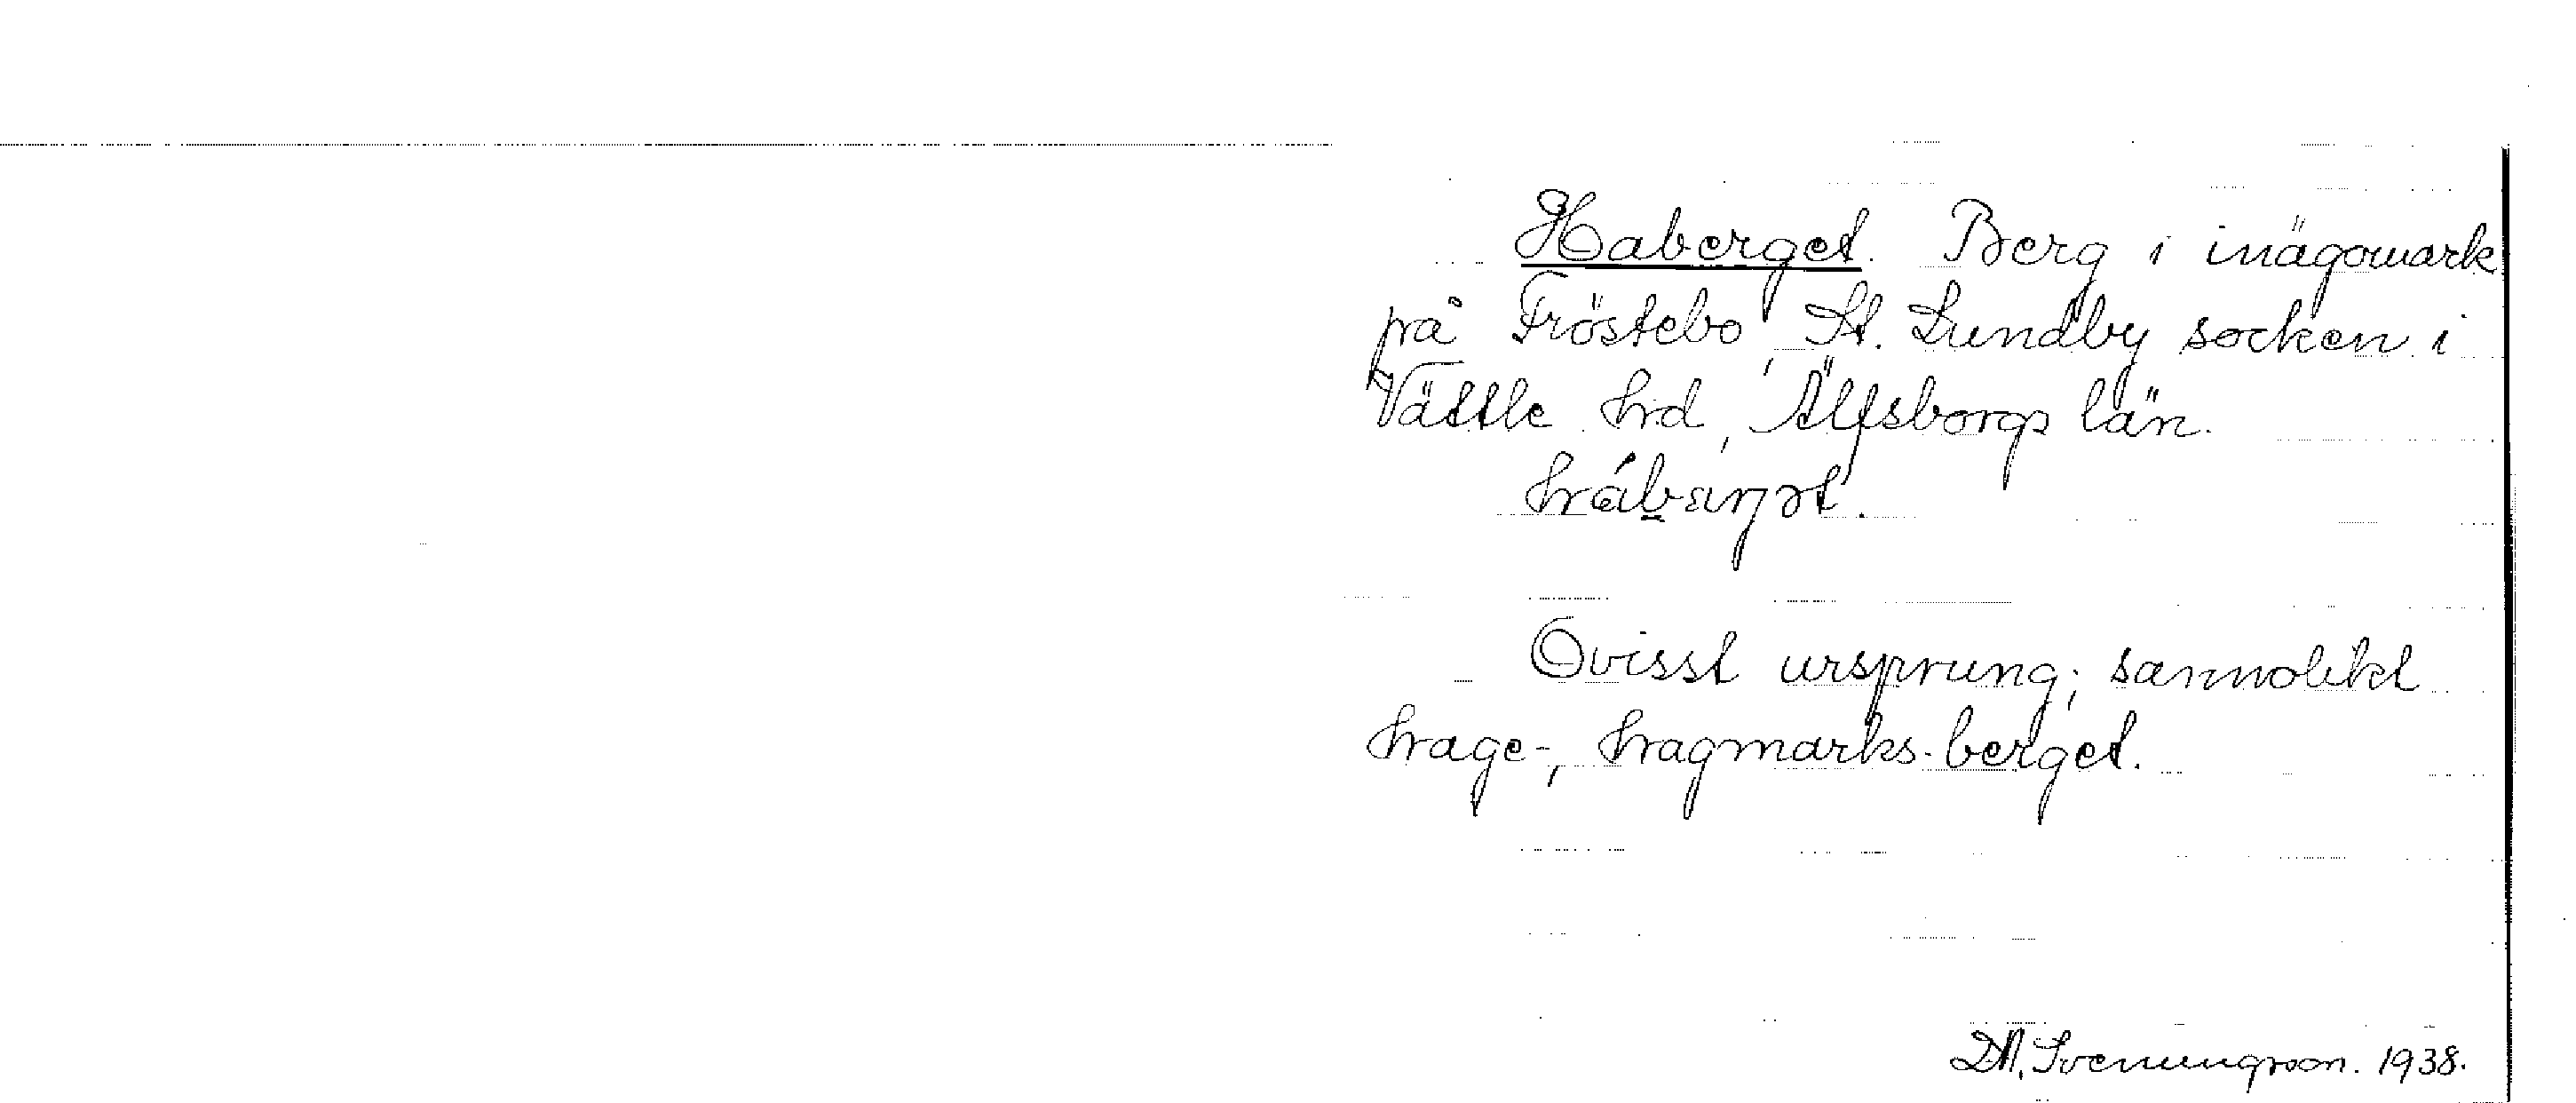 Haberget. Berg i inägomark
på Fröstebo, St. Lundby socken i
Vättle hrd, Älfsborgs län.
Ovisst ursprung; sannolikt
hage-, hagmarks-berget.
D.A. Svenungsson. 1938.